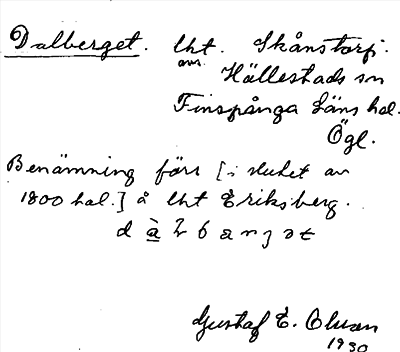 Dalberget. lht. Skånstorp.
avs.
Hällestads sn
Finspånga läns hd.
Ögl.
Benämning förr [i slutet av
1800 tal.] å lht Eriksberg.
Gustaf E. Olsson
1930